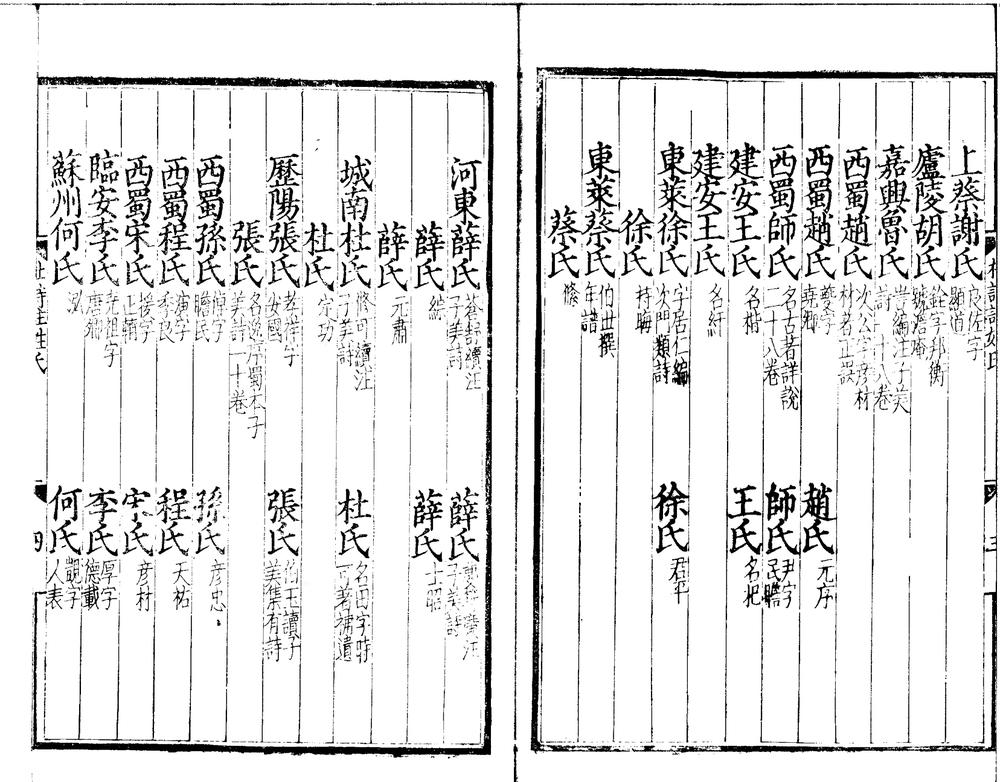 上蔡謝氏良佐字顯道
廬陵胡氏銓字邦衡號澹庵
嘉興魯氏訔編注子美詩一十八卷
西蜀趙氏次公字彥材材著正誤
西蜀趙氏夔字堯卿 趙氏元序
西蜀師氏名古著詳說二十八卷 師氏尹字民瞻
建安王氏名楷 王氏名𣏌
建安王氏名紆
東萊徐氏字居仁編次門類詩 徐氏君平
徐氏持晦
東萊蔡氏伯世撰年譜
蔡氏條
河東薛氏蒼舒續注子美詩 薛氏
薛氏綜 薛氏士昭
薛氏元肅
城南杜氏修可續注子美詩 杜氏名田字時可著補遺
杜氏定功
歷陽張氏孝祥字安國 張氏伯玉讀子美集有詩
張氏名逸序蜀本子美詩一十卷
西蜀孫氏倬字瞻民 孫氏彥忠
西蜀程氏演字季良 程氏天祐
西蜀宋氏援字正輔 宋氏彥材
臨安李氏堯祖字唐卿 李氏厚字德載
蘇州何氏泓 何氏覬字人表
杜詩註姓氏 四